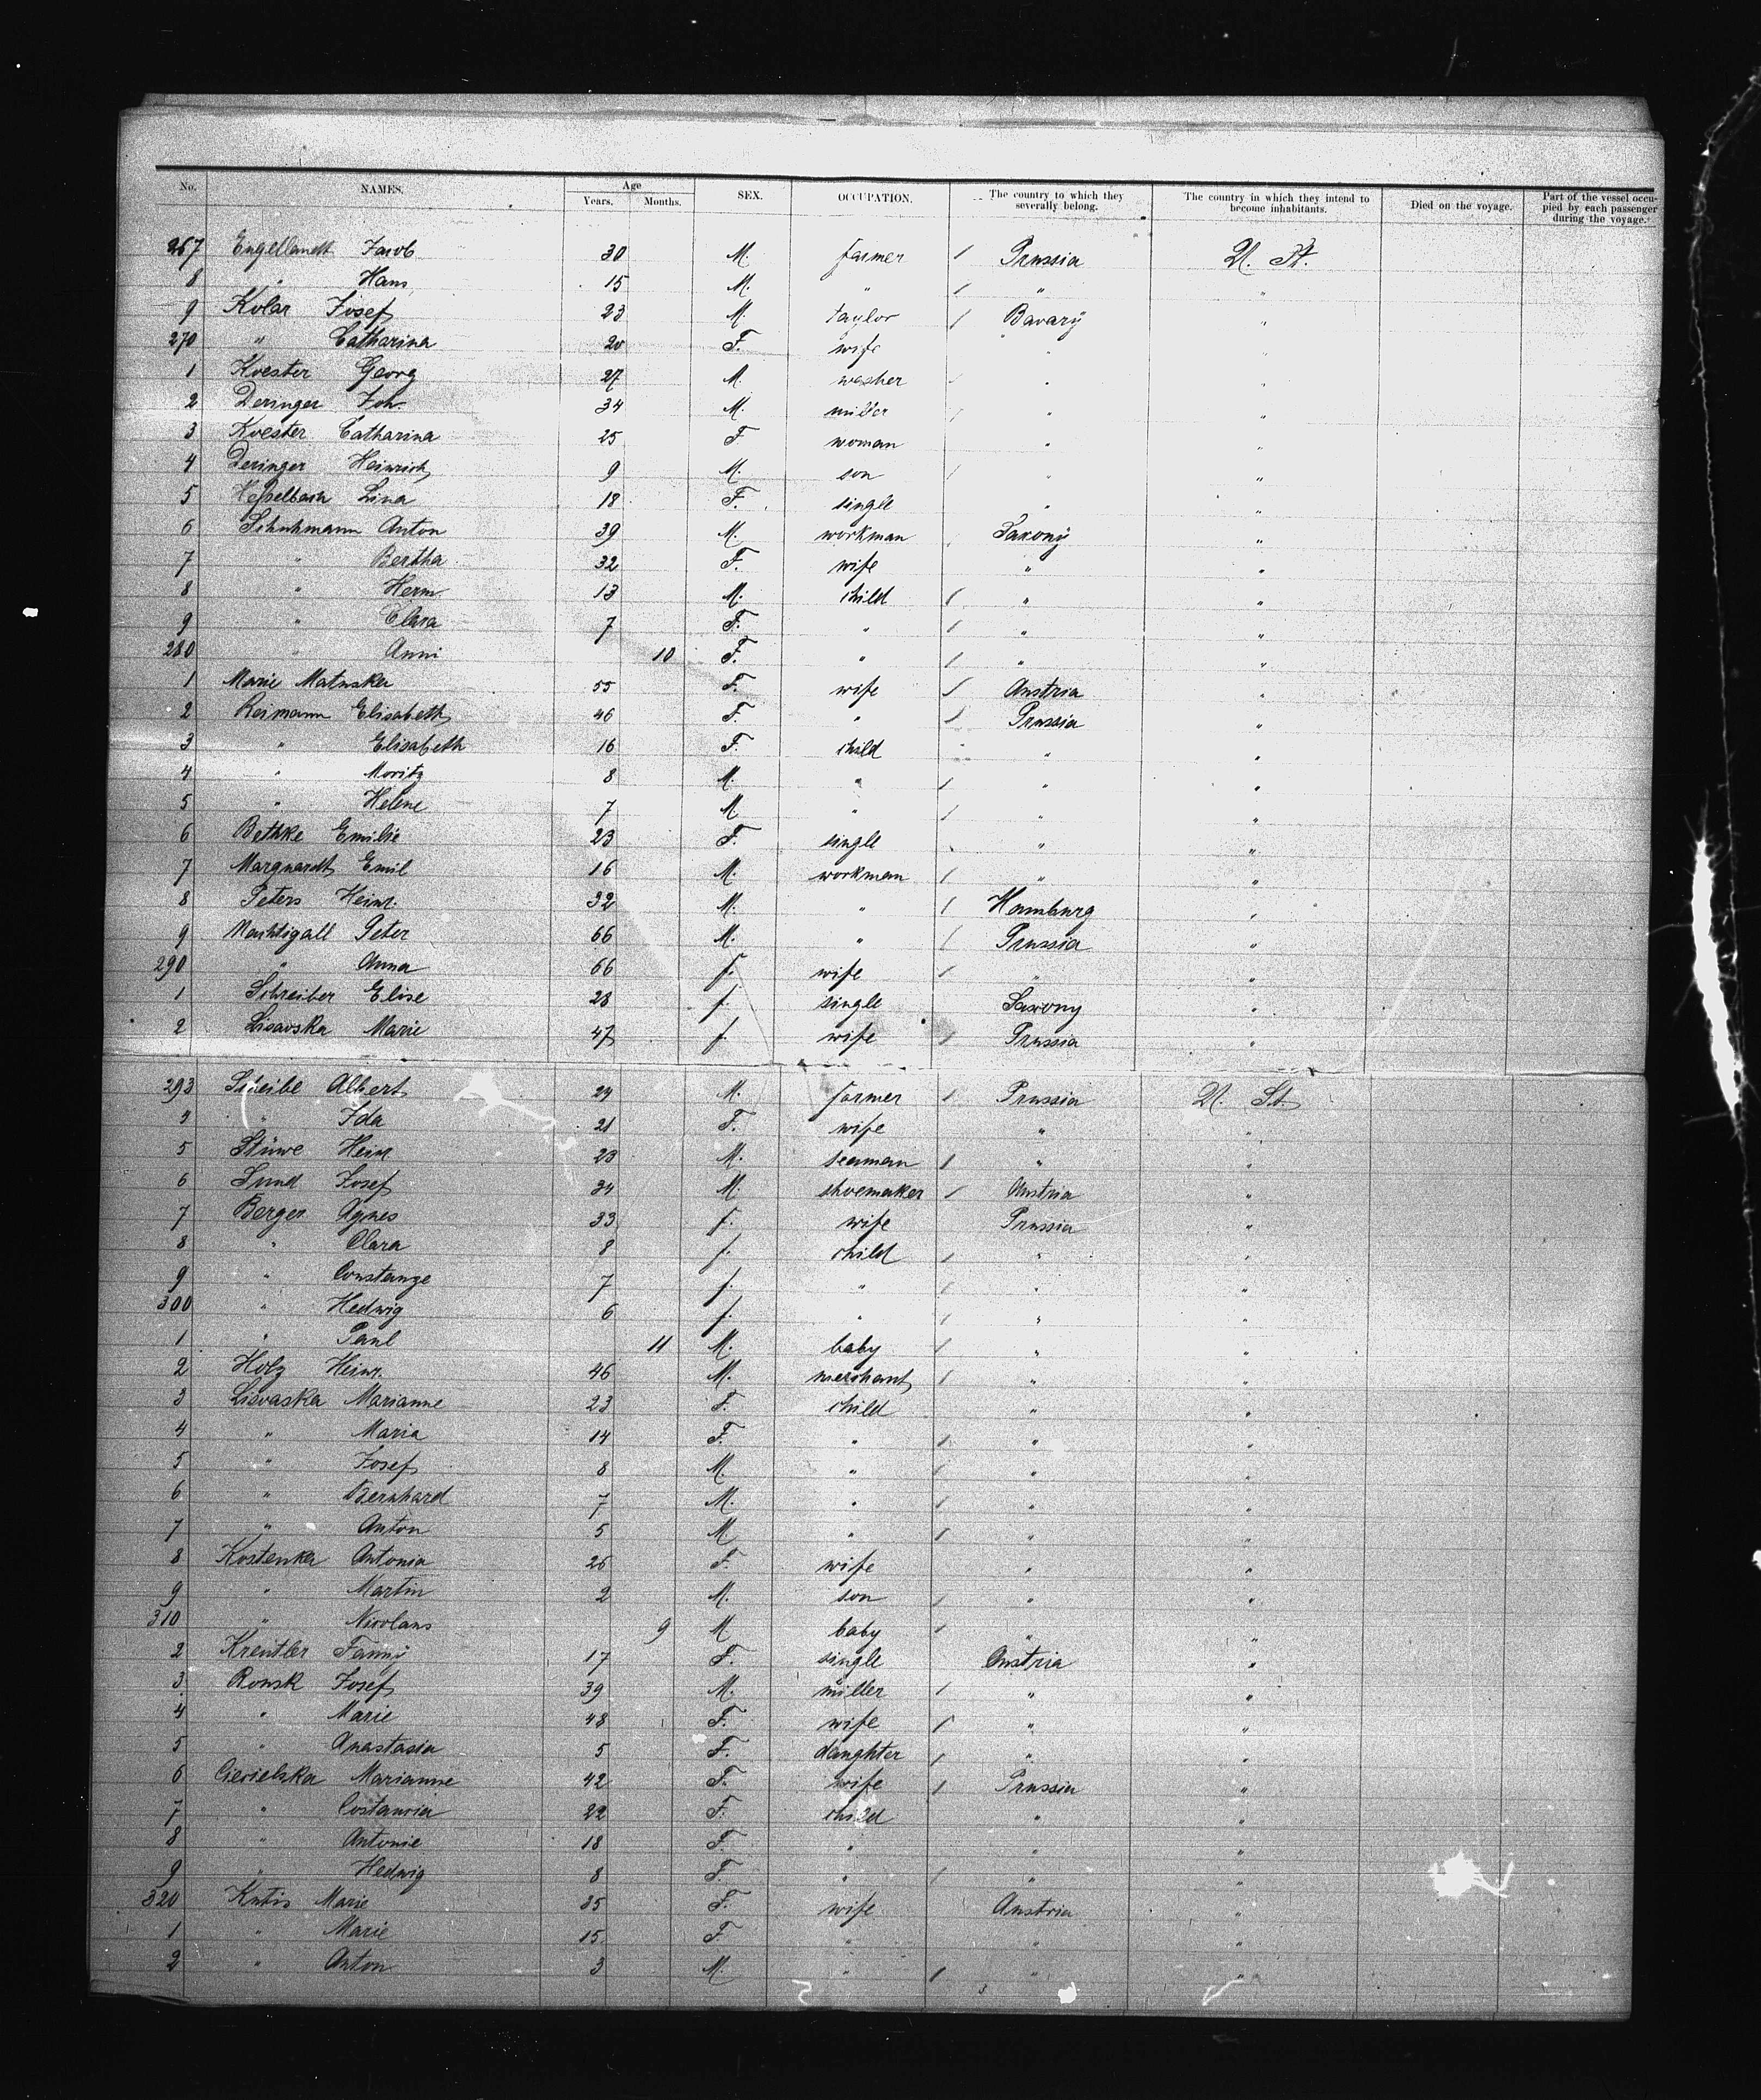 No. NAMES. Age Years. Months. SEX. OCCUPATION. The country to which they severally belong. The country in which they intend to become inhabitants. Died on the voyage. Part of the vessel occupied by each passenger during the voyage.
267 Engellandt Jacob 30 M. farmer / Prussia U. St.
8 " Hans 15 M. " / " "
9 Kolar Josef 23 M. taylor / Bavary "
270 " Catharina 20 F. wife " "
1 Koester Georg 27 M. washer / " "
2 Deringer Joh. 34 M. miller / " "
3 Koester Catharina 25 F woman " "
4 Deringer Heinrich 9 M. son / " "
5 Hesselbach Lina 18 F. single " "
6 Schuhmann Anton 39 M. workman / Saxony "
7 " Bertha 32 F. wife " "
8 " Herm. 13 M. child / " "
9 " Clara 7 F. " / " "
280 " Anni 10 F. " / " "
1 Marie Matuska 55 F. wife / Austria "
2 Reimann Elisabeth 46 F. " / Prussia "
3 " Elisabeth 16 F. child " "
4 " Moritz 8 M. " / " "
5 " Helene 7 M " / " "
6 Bethke Emilie 23 F. single " "
7 Marquardt Emil 16 M. workman / " "
8 Peters Heinr. 32 M. " / Hamburg "
9 Nachtigall Peter 66 M. " / Prussia "
290 " Anna 66 f. wife / " "
1 Schreiber Elise 28 f. single Saxony "
2 Lisavska Marie 47 f. wife / Prussia "
293 Scheibe Albert 24 M. farmer / Prussia U. St.
4 " Ida 21 F. wife " "
5 Stüwe Heinr 23 M. seaman / " "
6 Sund Josef 34 M. shoemaker / Austria "
7 Berger Agnes 33 f. wife Prussia "
8 " Clara 8 f. child / " "
9 " Constanze 7 f. " / " "
300 " Hedwig 6 f. " / " "
1 " Paul 11 M. baby / " "
2 Holz Heinr. 46 M. merchant / " "
3 Lisvaska Marianne 23 F. child " "
4 " Maria 14 F. " / " "
5 " Josef 8 M. " / " "
6 " Bernhard 7 M. " / " "
7 " Anton 5 M " / " "
8 Kostenka Antonia 26 F. wife " "
9 " Martin 2 M. son / " "
310 " Nicolaus 9 M baby / " "
2 Kreutler Fanny 17 F. single Austria "
3 Ronsk Josef 39 M. miller / " "
4 " Marie 48 F. wife / " "
5 " Anastasia 5 F. daughter / " "
6 Ciesielska Marianne 42 F. wife / Prussia "
7 " 22 F. child " "
8 " Antonie 18 F. " " "
9 " Hedwig 8 F. " / " "
320 Kutis Marie 35 F. wife Austria "
1 " Marie 15 F " " "
2 " Anton 3 M. " / " "